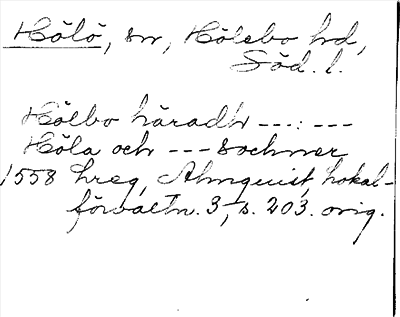 Hölö, sn, Hölebo hd,
Söd. l.
Hölbo häradh ---:---
Höla och --- sochner
1558 hreg, Almquist, Lokal-
förvaltn. 3, s. 203. orig.